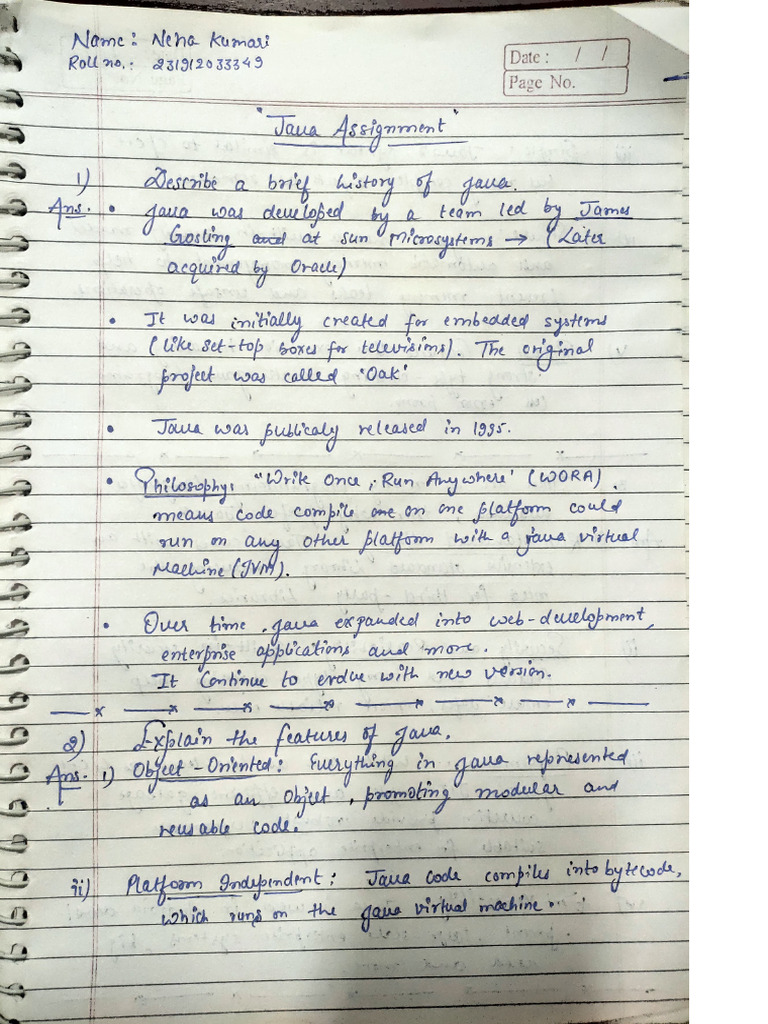 Name: Neha Kumari
Roll no.: 231912033349
Date: / /
Page No.
"Java Assignment"
1) Describe a brief history of Java.
Ans. • Java was developed by a team led by James
Gosling and at Sun Microsystems → (Later
acquired by Oracle)
• It was initially created for embedded systems
(like set-top boxes for televisions). The original
project was called 'Oak'
• Java was publicaly released in 1995.
• Philosophy: "Write Once, Run Anywhere' (WORA)
means code compile one on one platform could
run on any other platform with a Java virtual
Machine (JVM).
• Over time, Java expanded into web-development,
enterprise applications and more.
It Continue to evolve with new version.
2) Explain the features of Java.
Ans. i) Object-Oriented: Everything in Java represented
as an Object, promoting modular and
reusable code.
ii) Platform Independent: Java code compiles into bytecode,
which runs on the Java virtual machine.